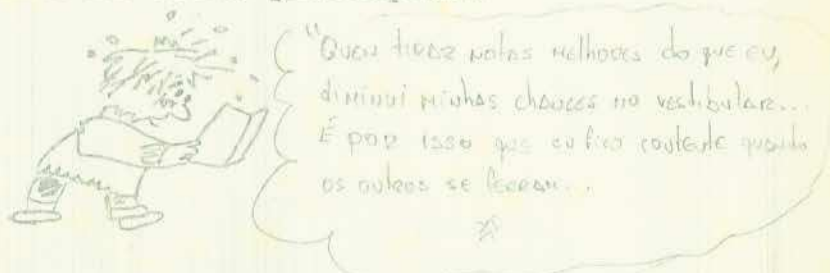 "Quem tirar notas melhores do que eu,
diminui minhas chances no vestibular...
É por isso que eu fico contente quando
os outros se ferram...